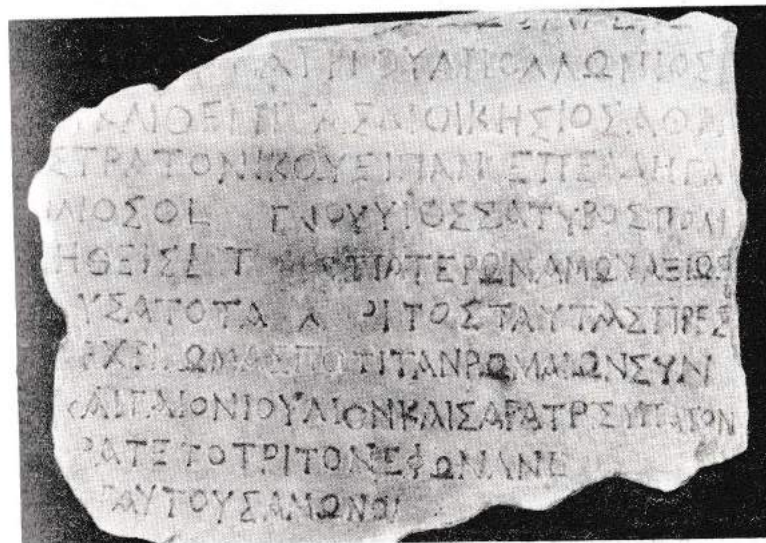 ΑΤΡΙΟΥΑΠΟΛΛΩΝΙΟΣ
ΑΣΔΙΟΙΚΗΣΙΟΣΑΘΑ
ΣΤΡΑΤΟΝΙΚΟΥΕΙΠΑΝΕΠΕΙΔΗΓΑ
ΛΙΟΣΟΛ ΓΝΟΥΥΙΟΣΣΑΤΥΡΟΣΠΟΛΙ
ΗΘΕΙΣ Τ ΠΑΤΕΡΩΝΑΜΩΝΑΞΙΩΣ
ΥΣΑΤΟΤΑ ΡΙΤΟΣΤΑΥΤΑΣΠΡΕΣ
ΡΧΕΙΛΩΜΑΣΠΟΤΙΤΑΝΡΩΜΑΙΩΝΣΥΝ
ΑΙΓΑΙΟΝΙΟΥΛΙΟΝΚΑΙΣΑΡΑΤΡΙΣΥΠΑΤΟΝ
ΡΑΤΕΤΟΤΡΙΤΟΝΕΦΩΝΑΝΕ
ΑΥΤΟΥΣΑΜΩΝΟΙ